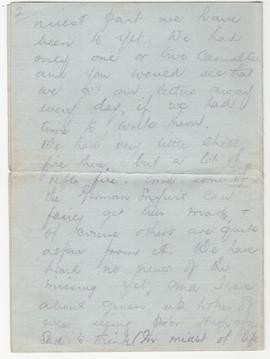 nicest part we have
been to yet. We had
only one or two casualties
and you would see that
we got our letters away
every day, if we had
time to write them.
We had very little shell
fire here, but a lot of
rifle fire. And some of
the German Snipers can
fairly get their mark, &
of course others are quite
afar from it. We have
heard no news of the
missing yet, and I have
about given up hopes of
ever seeing poor
Sad to think (In midst of life